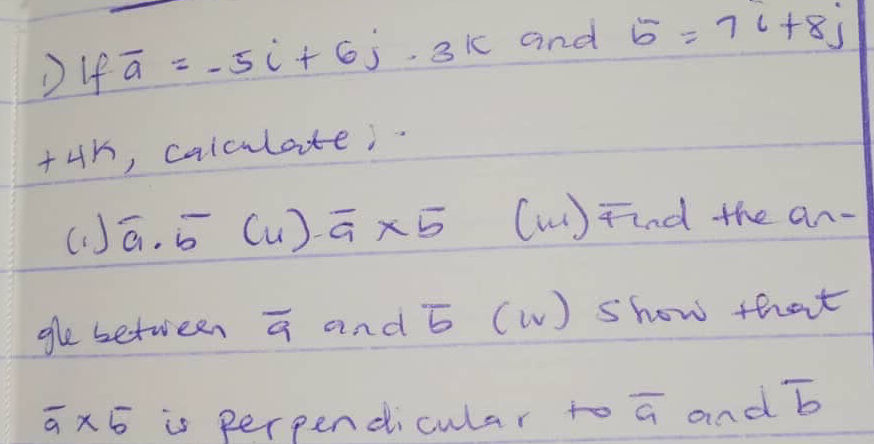 1) If a̅ = -5i + 6j - 3k and b̅ = 7i + 8j
+ 4k, calculate; -
(i) a̅ . b̅ (ii) a̅ × b̅ (iii) Find the an-
gle between a̅ and b̅ (iv) show that
a̅ × b̅ is perpendicular to a̅ and b̅